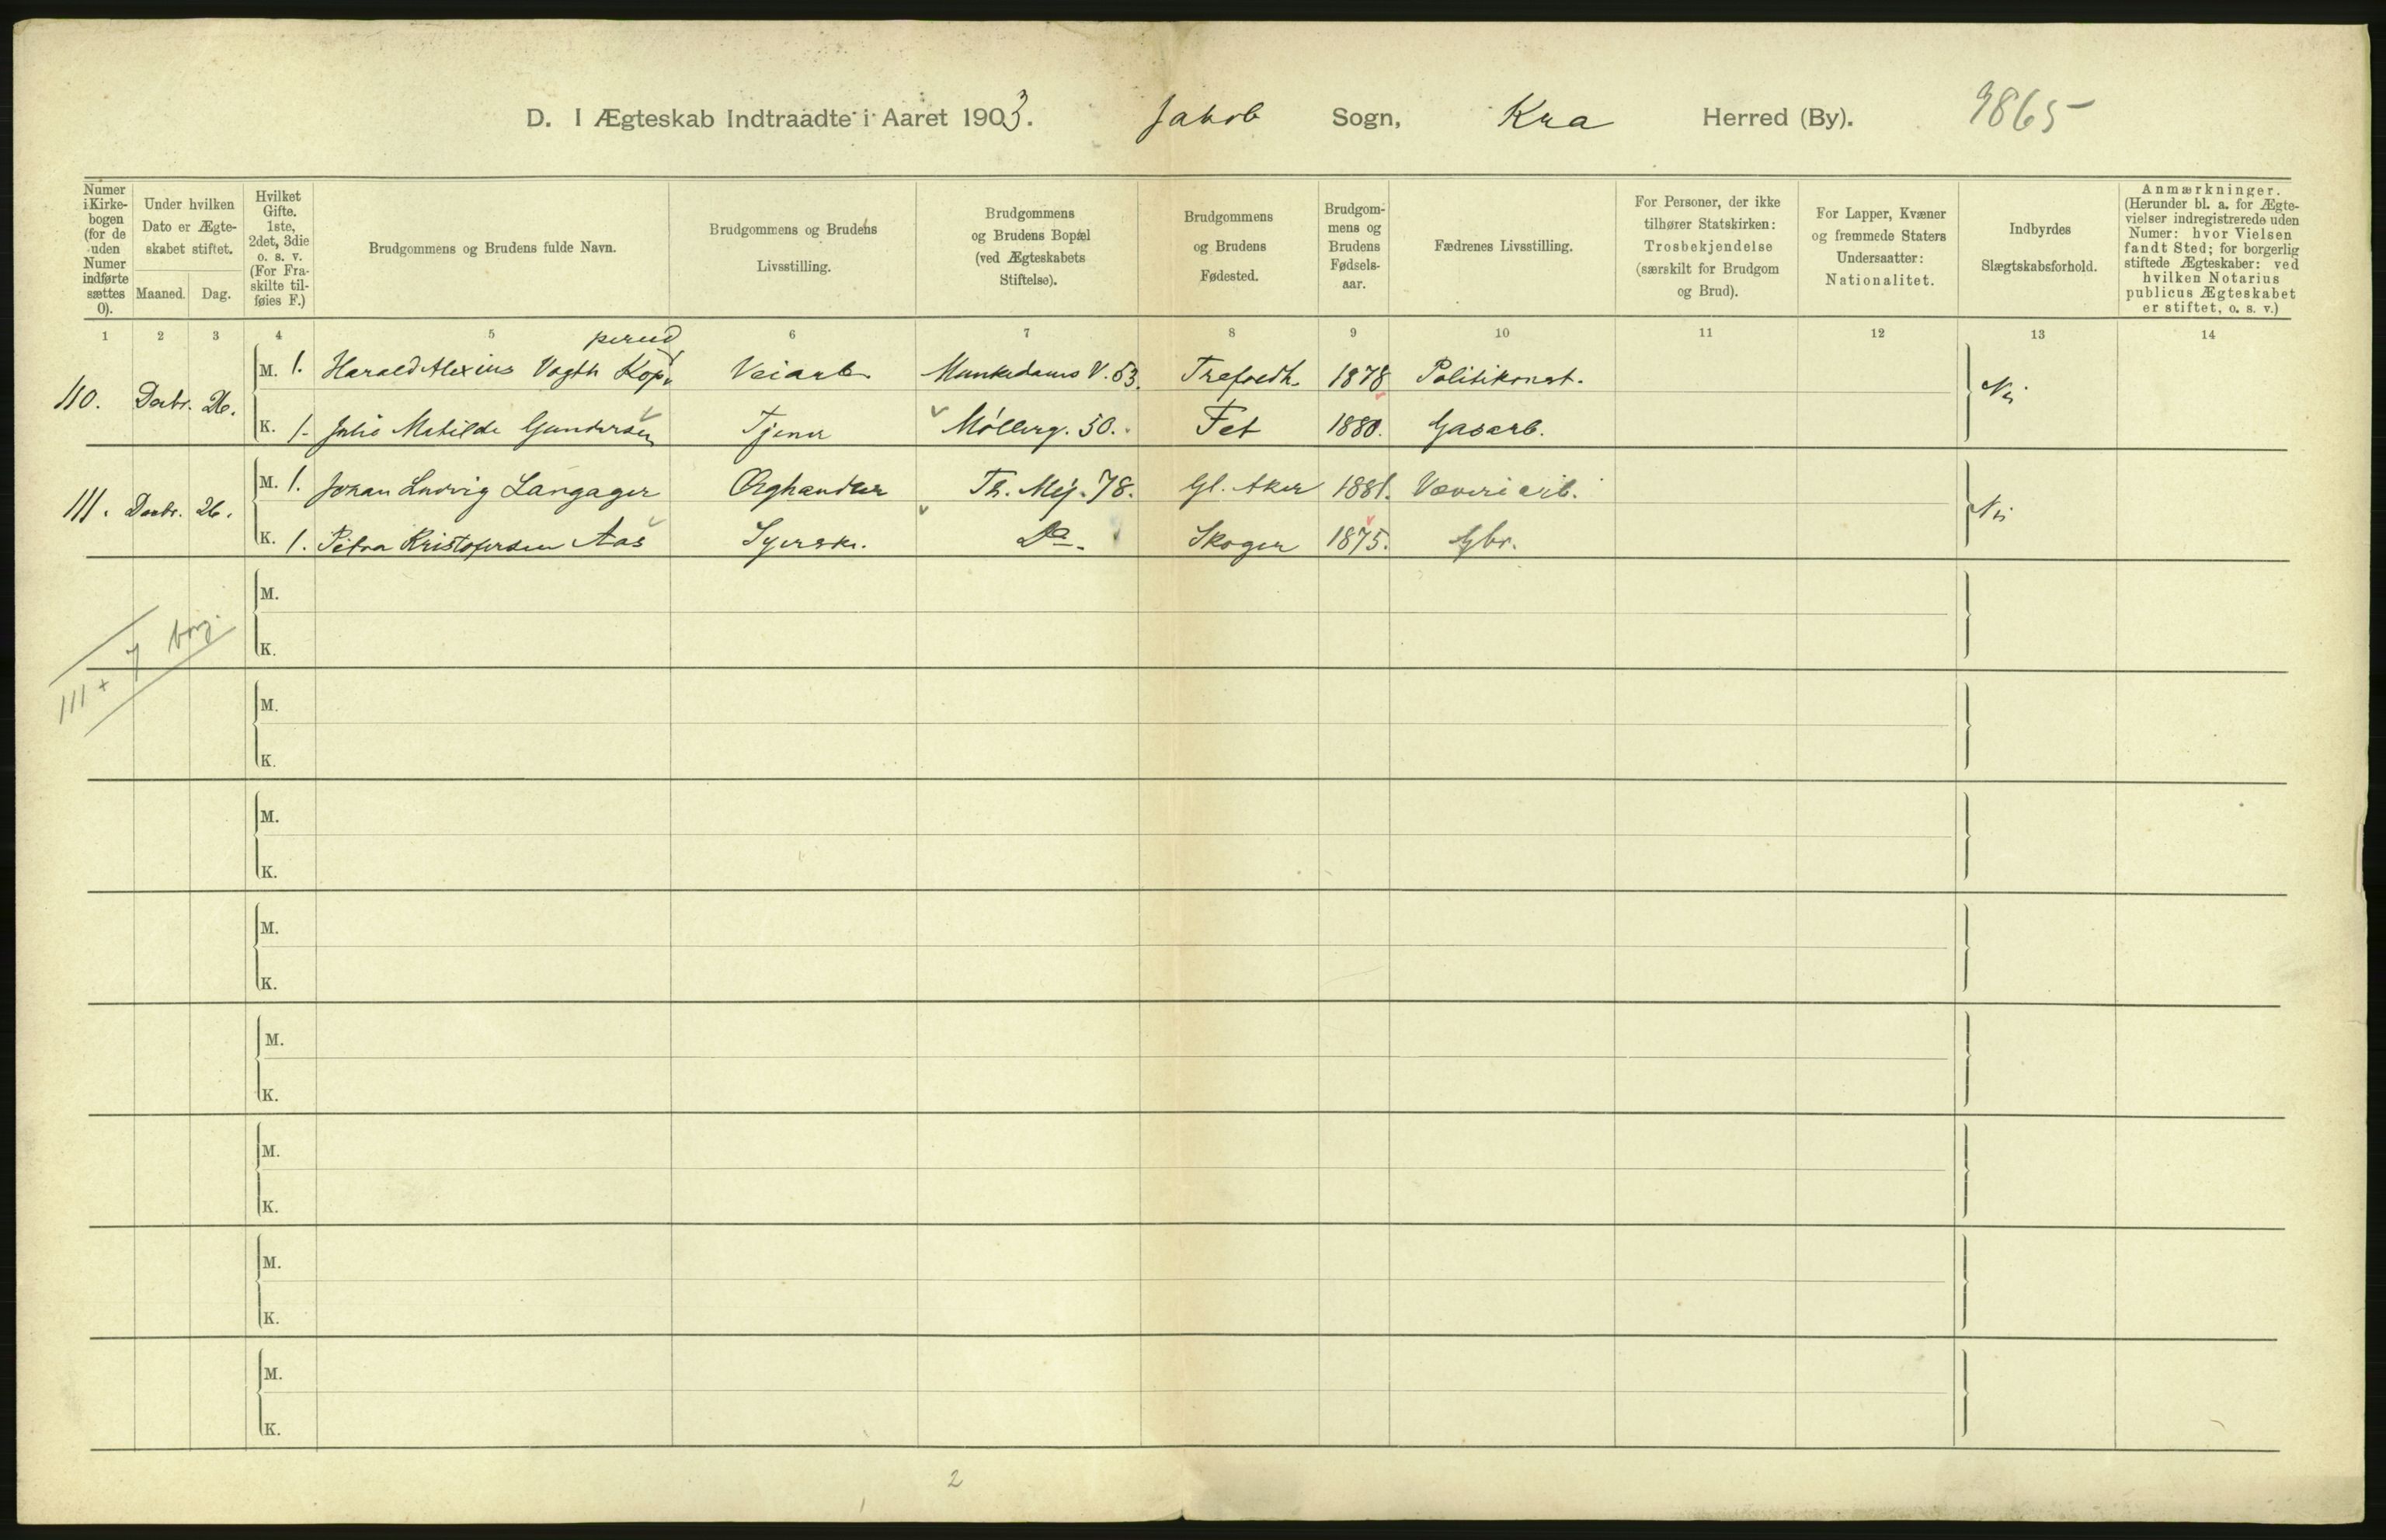 D. I Ægteskab Indtraadte i Aaret 1903. Jakob Sogn, Kra Herred (By). 9865
Numer i Kirke-bogen (for de uden Numer indførte sættes 0).
Under hvilken Dato er Ægte-skabet stiftet.
Maaned. Dag.
Hvilket Gifte. 1ste, 2det, 3die o. s. v. (For Fra-skilte til-føies F.)
Brudgommens og Brudens fulde Navn.
Brudgommens og Brudens Livsstilling.
Brudgommens og Brudens Bopæl (ved Ægteskabets Stiftelse).
Brudgommens og Brudens Fødested.
Brudgom-mens og Brudens Fødsels-aar.
Fædrenes Livsstilling.
For Personer, der ikke tilhører Statskirken: Trosbekjendelse (særskilt for Brudgom og Brud).
For Lapper, Kvæner og fremmede Staters Undersaatter: Nationalitet.
Indbyrdes Slægtskabsforhold.
Anmærkninger. (Herunder bl. a. for Ægte-vielser indregistrerede uden Numer: hvor Vielsen fandt Sted; for borgerlig stiftede Ægteskaber: ved hvilken Notarius publicus Ægteskabet er stiftet, o. s. v.)
1 2 3 4 5 6 7 8 9 10 11 12 13 14
perud
110. Decbr. 26. M. 1. Harald Alexius Vogth Kop Veiarb. Munkedams V. 53. 1878 Politikonst. Nei
K. 1. Julie Matilde Gundersen Tjener Møllerg. 50. Fet 1880. Gasarb.
111. Decbr. 26. M. 1. Johan Ludvig Langager Th. Mey. 78. Gl. Aker 1881. Væveriarb. Nei
K. 1. Petra Kristofersen Aas Syerske. Do. Skoger 1875. Gbr.
M.
K.
111 + 7 borg.
M.
K.
M.
K.
M.
K.
M.
K.
M.
K.
M.
K.
M.
K.
2